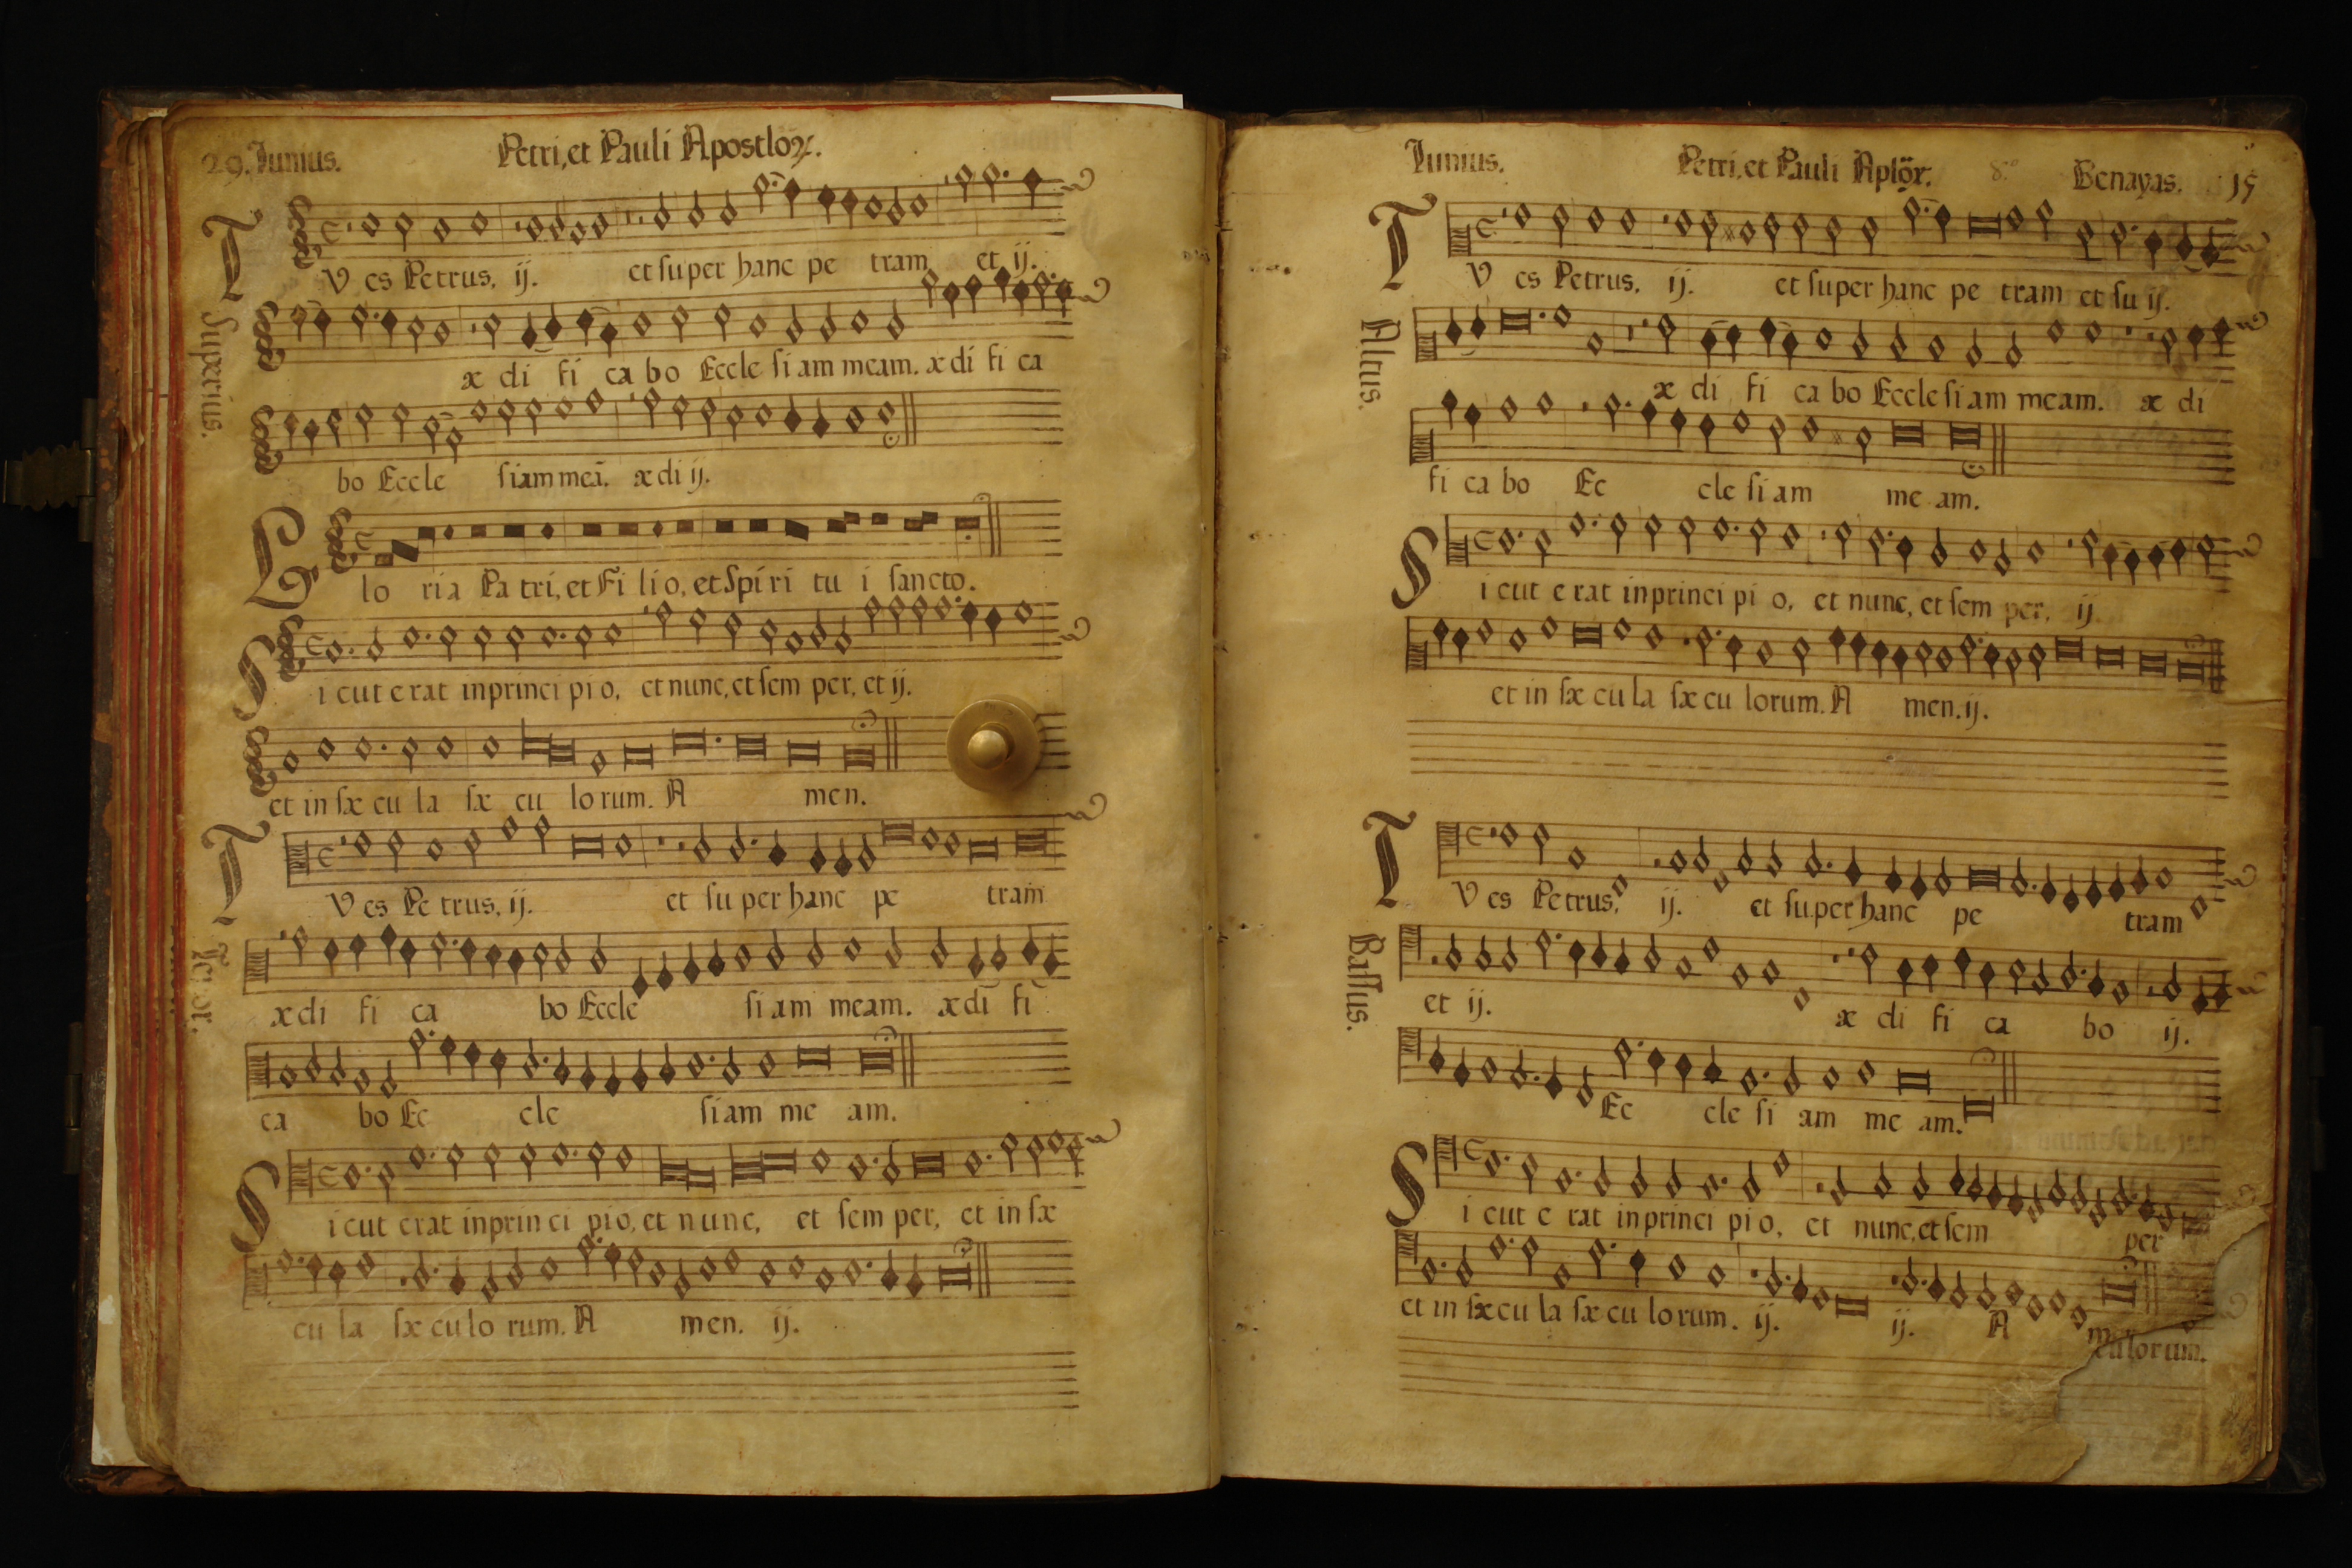 29. Iunius. Petri, et Pauli Apostloꝝ.
T V es Petrus, ij. et super hanc pe tram et ij.
Superius.
æ di fi ca bo Eccle si am meam. æ di fi ca
bo Eccle siam meā. æ di ij.
G lo ria Pa tri, et Fi li o, et Spi ri tu i sancto.
S i cut e rat in princi pi o, et nunc, et sem per, et ij.
et in sæ cu la sæ cu lo rum. A men.
T V es Pe trus, ij. et su per hanc pe tram
Tenor.
æ di fi ca bo Eccle si am meam. æ di fi
ca bo Ec cle si am me am.
S i cut erat in prin ci pio, et nunc, et sem per, et in sæ
cu la sæ cu lo rum. A men. ij.
Iunius. Petri, et Pauli Aplõr. 8º Benayas. 15
T V es Petrus, ij. et super hanc pe tram et su ij.
Altus.
æ di fi ca bo Eccle si am meam. æ di
fi ca bo Ec cle si am me am.
S i cut e rat in princi pi o, et nunc, et sem per, ij.
et in sæ cu la sæ cu lorum. A men. ij.
T V es Petrus, ij. et super hanc pe tram
Bassus.
et ij. æ di fi ca bo ij.
Ec cle si am me am.
S i cut e rat in princi pi o, et nunc, et sem per
et in sæ cu la sæ cu lo rum. ij. ij. A
culorum.